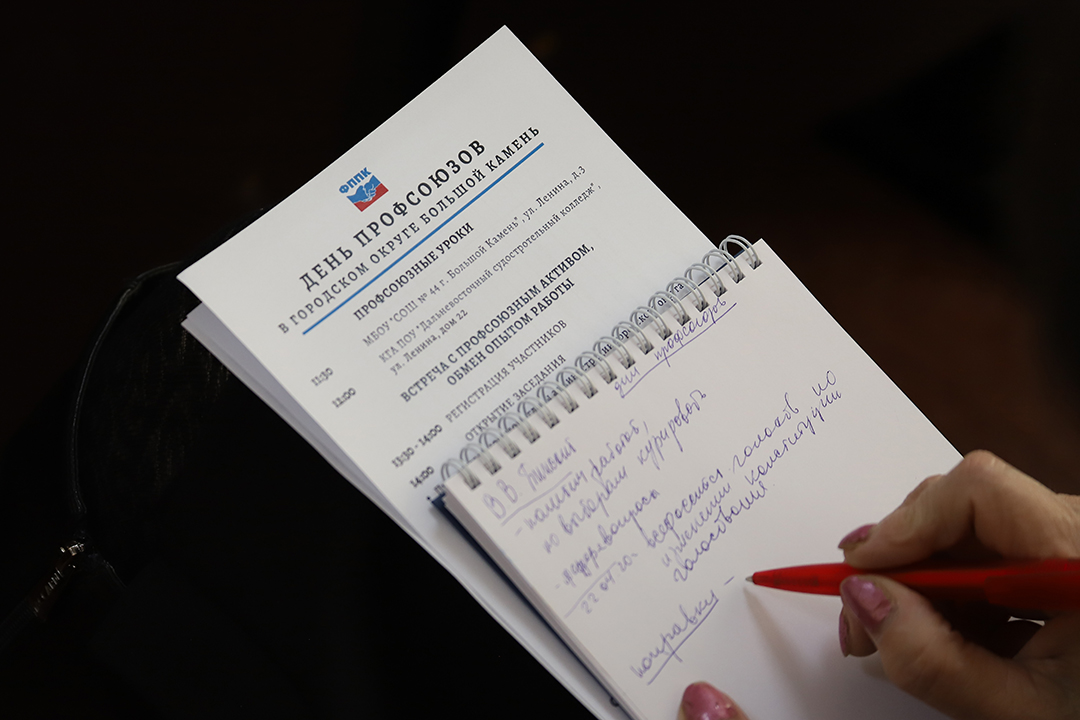 ФППК
ДЕНЬ ПРОФСОЮЗОВ
В ГОРОДСКОМ ОКРУГЕ БОЛЬШОЙ КАМЕНЬ
11:30
ПРОФСОЮЗНЫЕ УРОКИ
МБОУ "СОШ № 44 г. Большой Камень", ул. Ленина, д.3
12:00
КГА ПОУ "Дальневосточный судостроительный колледж",
ул. Ленина, дом 22
ВСТРЕЧА С ПРОФСОЮЗНЫМ АКТИВОМ,
ОБМЕН ОПЫТОМ РАБОТЫ
13:30 - 14:00 РЕГИСТРАЦИЯ УЧАСТНИКОВ
14:00 ОТКРЫТИЕ ЗАСЕДАНИЯ
дни профсоюзов
В.В.
работой,
по выборам курировать
22 04 20. всероссийск голосов. по
изменении конституции
голосования.
поправки -